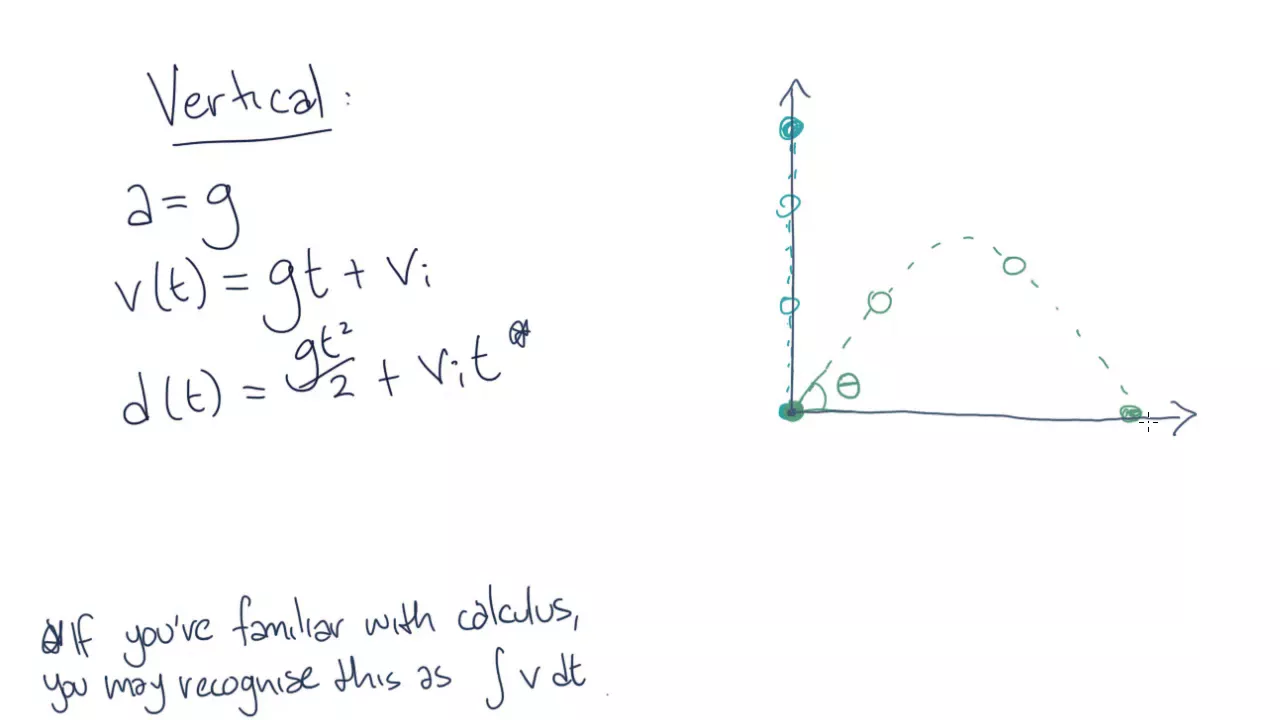 Vertical:
a = g
v(t) = gt + vᵢ
d(t) = gt²/2 + vᵢt *
θ
* If you've familiar with calculus,
you may recognise this as ∫ v dt